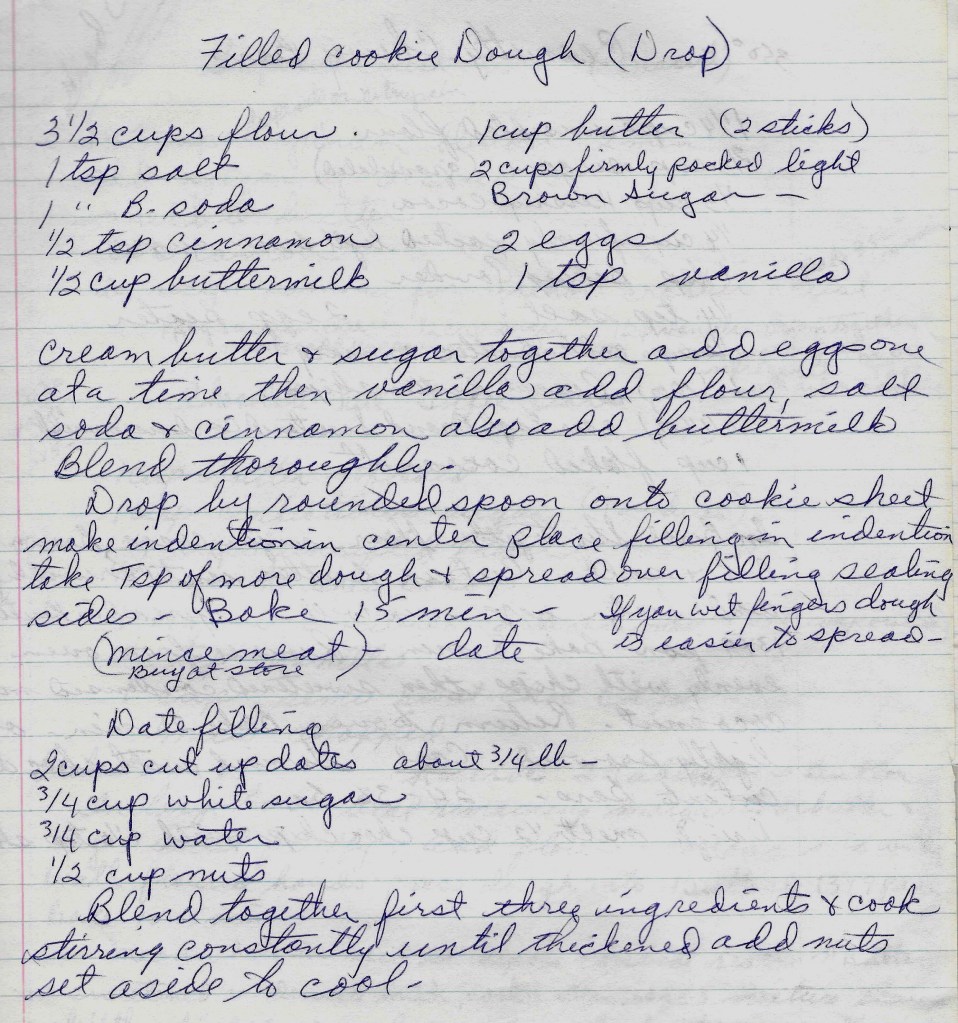 Filled Cookie Dough (Drop)
3 1/2 cups flour. 1 cup butter (2 sticks)
1 tsp salt 2 cups firmly packed light
Brown Sugar -
1 " B. soda
1/2 tsp cinnamon 2 eggs
1/2 cup buttermilk 1 tsp vanilla
Cream butter & sugar together add eggs one
at a time then vanilla add flour, salt
soda & cinnamon also add buttermilk
Blend thoroughly -
Drop by rounded spoon onto cookie sheet
make indention in center place filling in indention
take Tsp of more dough & spread over filling sealing
sides - Bake 15 min - If you wet fingers dough
is easier to spread -
(mince meat) - date
Buy at store
Date filling
2 cups cut up dates about 3/4 lb -
3/4 cup white sugar
3/4 cup water
1/2 cup nuts
Blend together first three ingredients & cook
stirring constantly until thickened add nuts
set aside to cool -